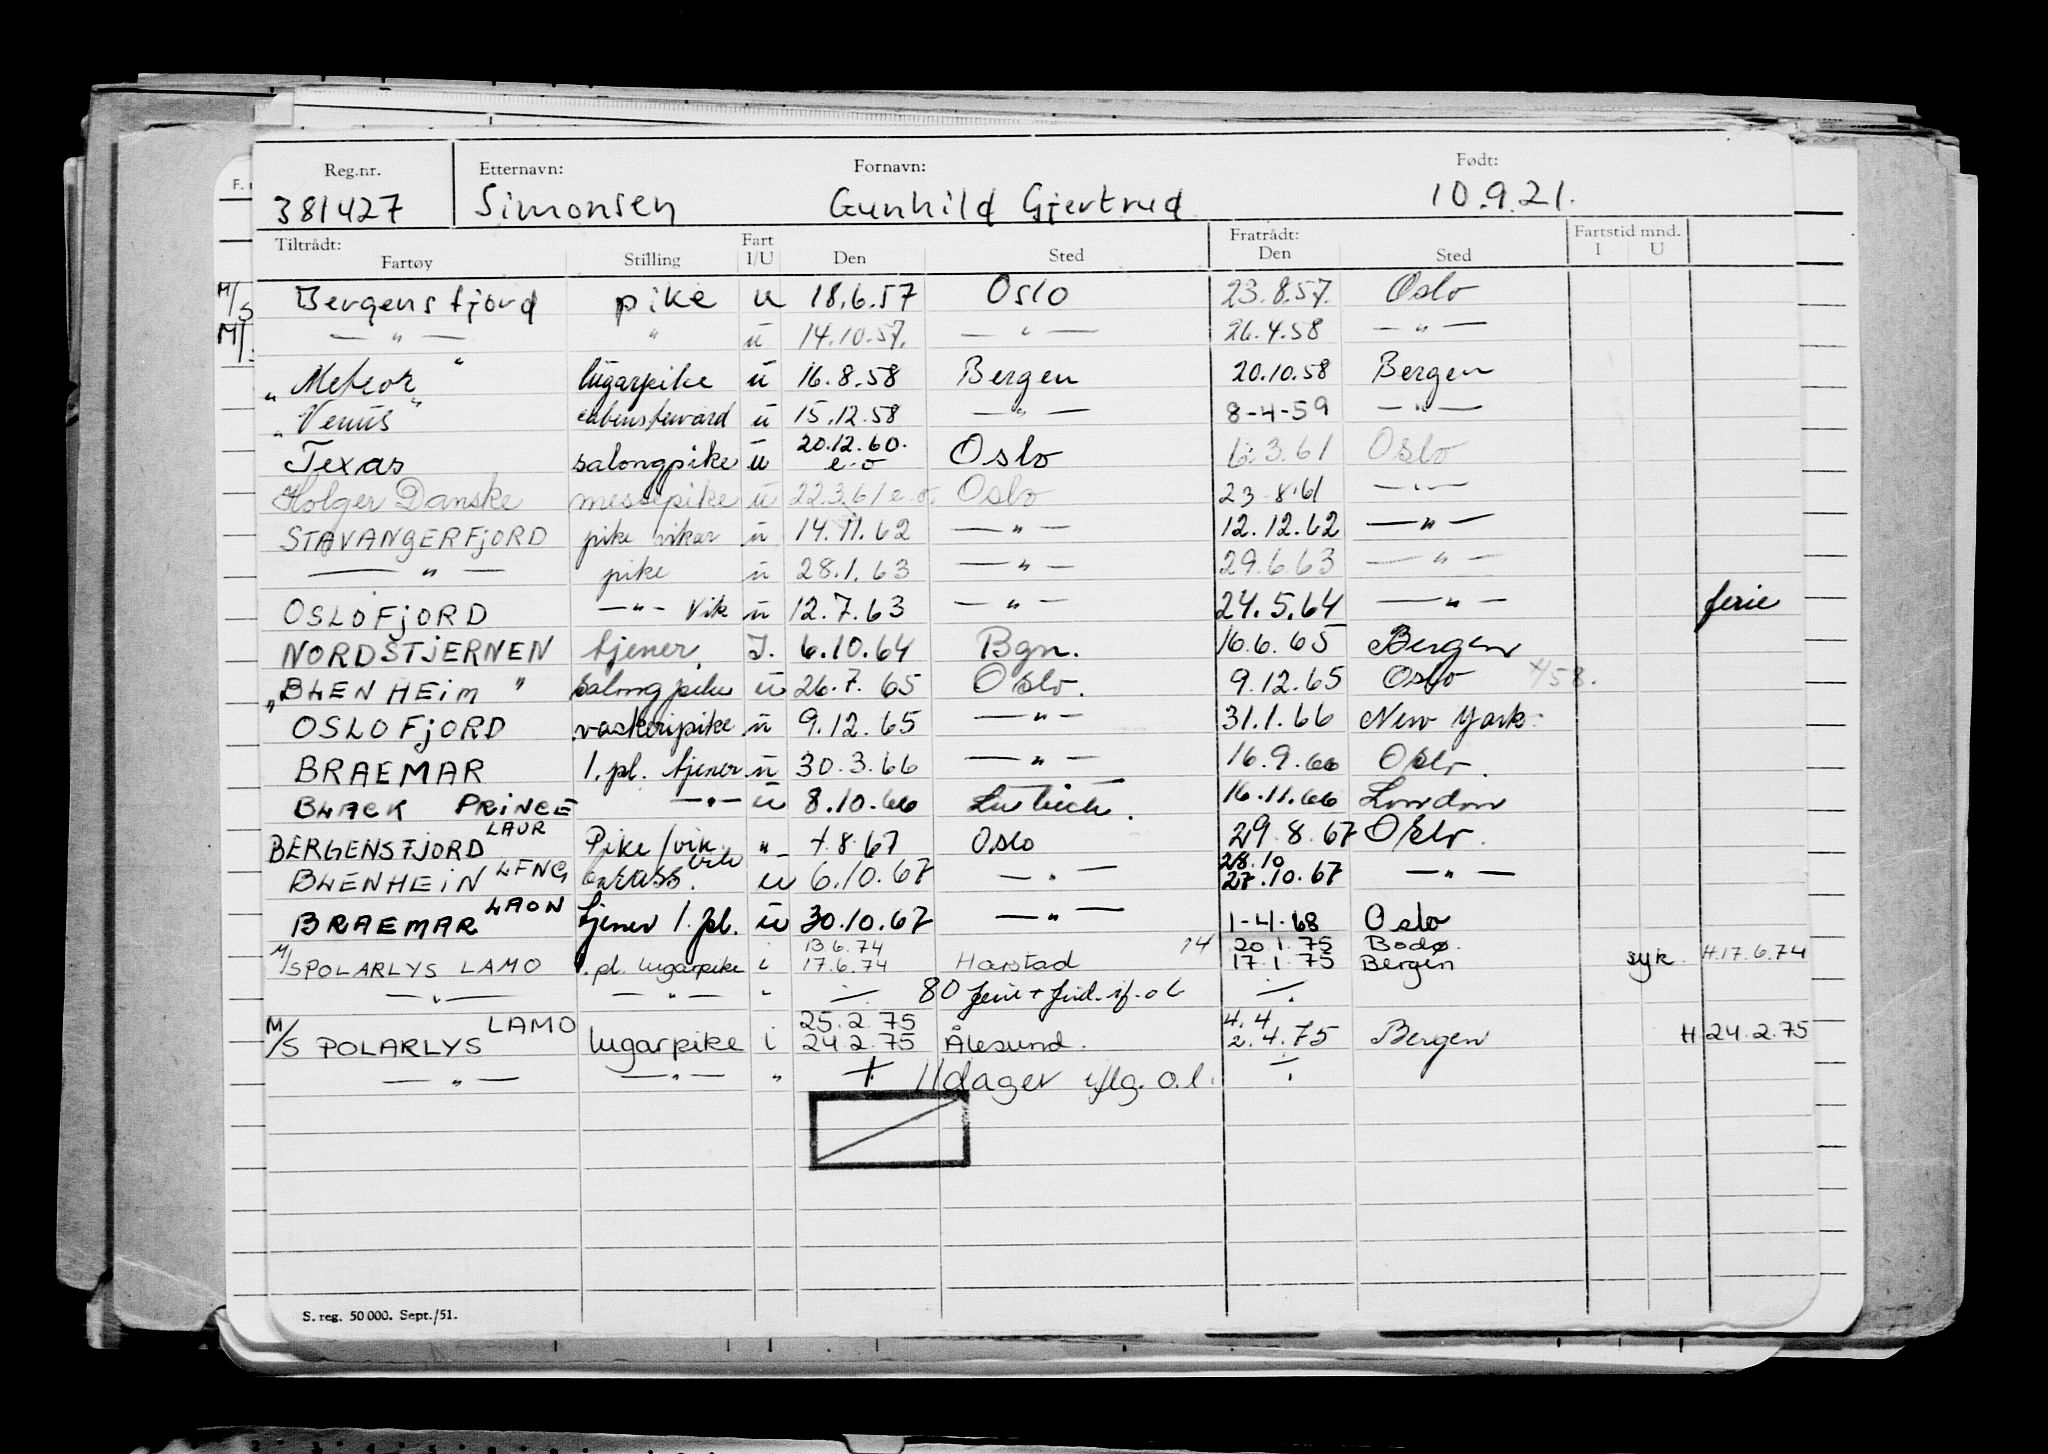 Reg.nr. Etternavn: Fornavn: Født:
381427 Simonsen Gunhild Gjertrud 10.9.21.
Tiltrådt: Fartøy Stilling Fart I/U Den Sted Fratrådt: Den Sted Fartstid mnd. I U
M/S Bergensfjord pike u 18.6.57 Oslo 23.8.57. Oslo
M/ — " — " u 14.10.57. — " — 26.4.58 — " —
"Meteor" lugarpike u 16.8.58 Bergen 20.10.58 Bergen
"Venus" cabinsteward u 15.12.58 — " — 8-4-59 — " —
Texas salongpike u 20.12.60. e.o Oslo 6.3.61 Oslo
Holger Danske messepike u 22.3.61 e.o Oslo 23.8.61 — " —
STAVANGERFJORD pike vikar u 14.11.62 — " — 12.12.62 — " —
— " — pike u 28.1.63 — " — 29.6.63 — " —
OSLOFJORD — " — Vik u 12.7.63 — " — 24.5.64 — " — ferie
NORDSTJERNEN tjener I. 6.10.64 Bgn. 16.6.65 Bergen
"BLENHEIM" salongpike u 26.7.65 Oslo. 9.12.65 Oslo
OSLOFJORD vaskeripike u 9.12.65 — " — 31.1.66 New York
BRAEMAR 1.pl. tjener u 30.3.66 — " — 16.9.66 Oslo.
BLACK PRINCE — " — u 8.10.66 Lübeck. 16.11.66 London
BERGENSFJORD LAUR Pike/vik " .8.67 Oslo 29.8.67 Oslo.
BLENHEIN LFNG u 6.10.67 — " — 28.10 27.10.67 — " —
BRAEMAR LAON tjener 1.pl. u 30.10.67 — " — 1-4-68 Oslo
M/S POLARLYS LAMO .pl. lugarpike i 13.6.74 17.6.74 Harstad 14 20.1.75 17.1.75 Bodø. Bergen syk. H.17.6.74
— " — — " — " ÷ 80 ferie + ÷
M/S POLARLYS LAMO lugarpike i 25.2.75 24.2.75 Ålesund. 4.4 2.4.75 Bergen H 24.2.75
— " — — " — " 11 dager iflg. o.l. ÷
S. reg. 50 000. Sept./51.